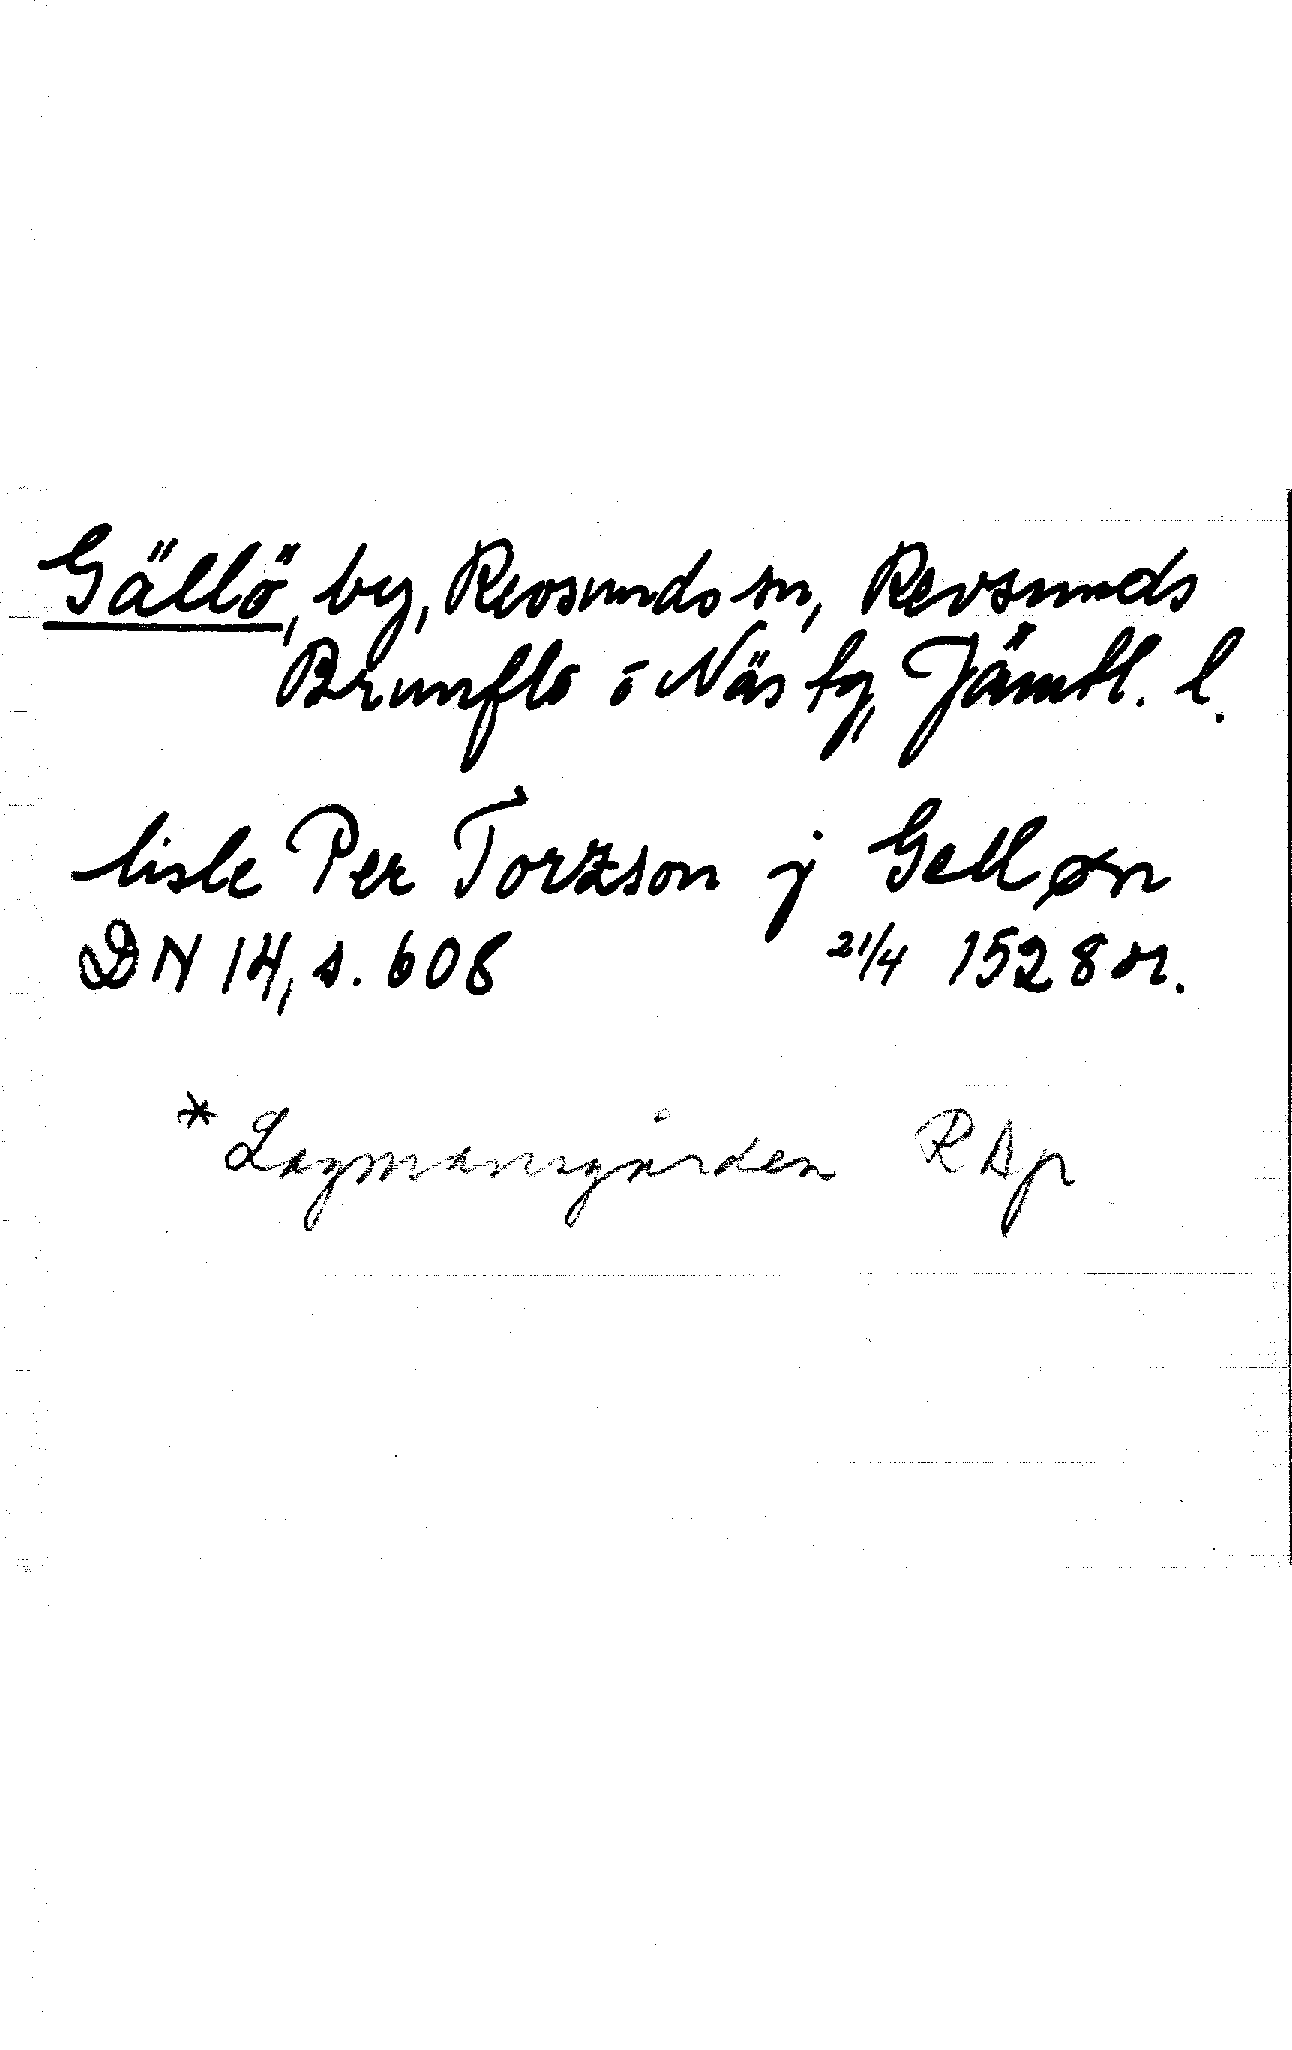 Gällö, by, Revsunds sn, Revsunds
Brunflo o Näs tg, Jämtl. l.
lisle Per Torzson j Gelløn
DN 14, s. 608 21/4 1528 or.
* Lagmansgården RAp